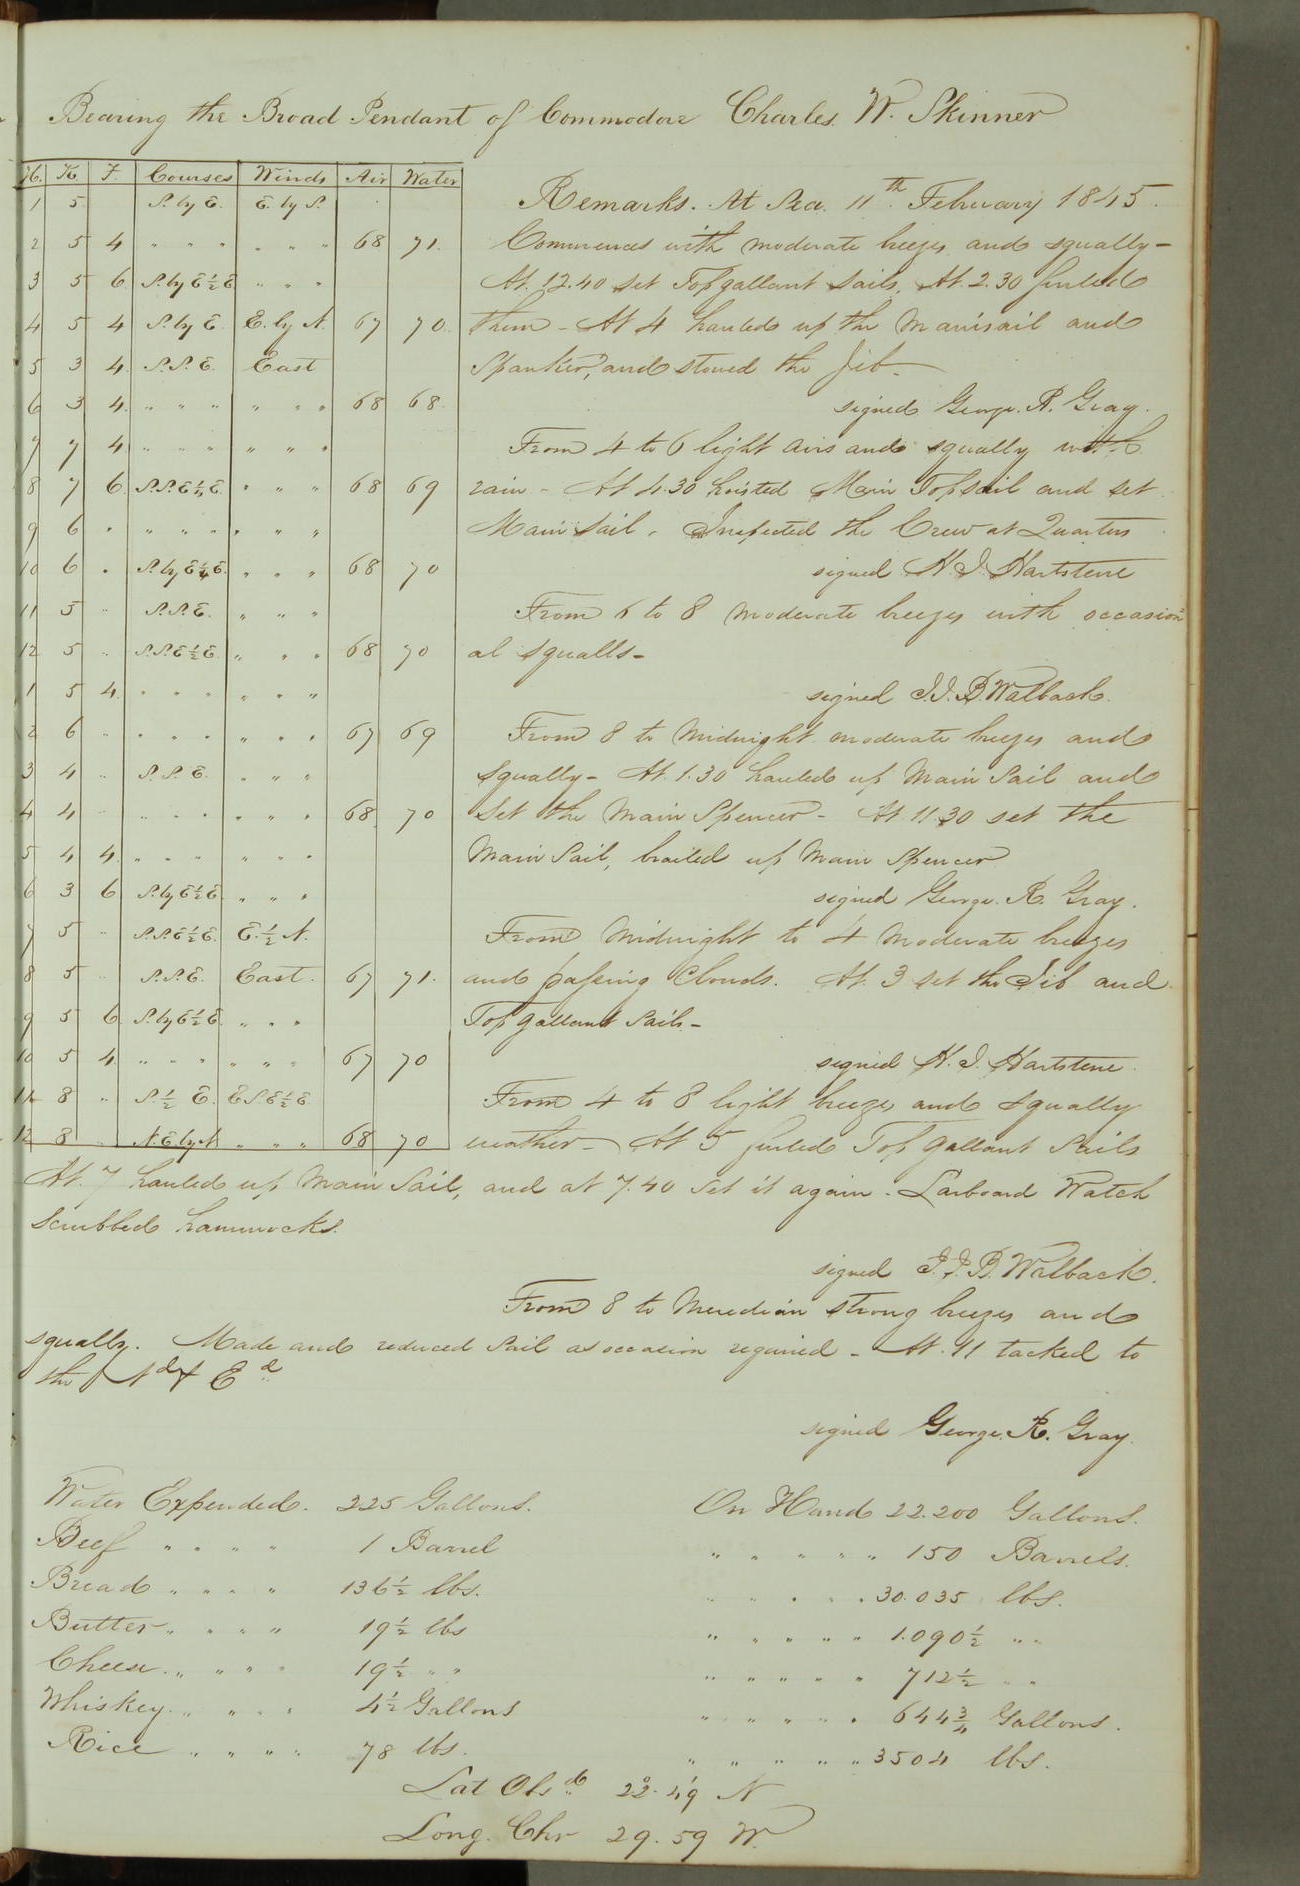 Bearing the Broad Pendant of Commodore Charles W. Skinner
H. K. F. Courses Winds Air Water
1 5 S. by E. E. by S.
2 5 4 " " " " " " 68 71.
3 5 6 S. by E ½ E " " "
4 5 4 S. by E. E. by N. 67 70.
5 3 4 S.S.E. East
6 3 4 " " " " " " 68 68.
7 7 4 " " " " " "
8 7 6 S.S.E ¼ E. " " " 68 69
9 6 " " " " " " " "
10 6 " S. by E ¼ E. " " " 68 70
11 5 " S.S.E. " " "
12 5 " S.S.E ½ E. " " " 68 70
1 5 4 " " " " " "
2 6 " " " " " " " 67 69
3 4 " S.S.E. " " "
4 4 " " " " " " " 68 70
5 4 4 " " " " " "
6 3 6 S. by E ½ E " " "
7 5 " S.S.E ½ E. E. ½ N.
8 5 " S.S.E. East. 67 71.
9 5 6 S. by E ½ E " " "
10 5 4 " " " " " " 67 70
11 8 " S. ½ E. E S E ½ E.
12 8 N.E by N " " " 68 70
Remarks. At Sea. 11th. February 1845.
Commences with moderate breezes and squally -
At. 12.40 set Topgallant sails. At. 2.30 furled
them - At 4 hauled up the Mainsail and
Spanker, and stowed the Jib -
signed George. R. Gray.
From 4 to 6 light airs and squally with
rain - At 4.30 hoisted Main Topsail and set
Main Sail. Inspected the Crew at Quarters
signed H. J. Hartstene
From 6 to 8 moderate breezes with occasion
al squalls -
signed J.J.B. Walback.
From 8 to Midnight moderate breezes and
squally - At. 1.30 hauled up Main Sail and
Set the Main Spencer - At 11.30 set the
Main Sail, brailed up Main Spencer
signed George. R. Gray.
From Midnight to 4 Moderate breezes
and passing Clouds. At. 3 set the Jib and
Top gallant Sails -
signed H. J. Hartstene.
From 4 to 8 light breezes and squally
weather - At 5 furled Top gallant Sails
At. 7 hauled up Main Sail, and at 7.40 set it again. Larboard Watch
scrubbed hammocks.
signed J.J.B. Walback.
From 8 to Meredian strong breezes and
squally. Made and reduced sail as occasion required - At. 11 tacked to
the Nd & Ed
signed George. R. Gray.
Water Expended. 225 Gallons. On Hand 22.200 Gallons.
Beef " " " " 1 Barrel " " " " " 150 Barrels.
Bread " " " " 136 ½ lbs. " " " " " 30.035 lbs.
Butter " " " " 19 ½ lbs " " " " " 1.090 ½ " "
Cheese " " " " 19 ½ " " " " " " " 712 ½ " "
Whiskey " " " " 4 ½ Gallons " " " " " 644 ¾ Gallons.
Rice " " " " 78 lbs. " " " " " 3504 lbs.
Lat Obsd 22°. 49' N
Long. Chr 29. 59 W.